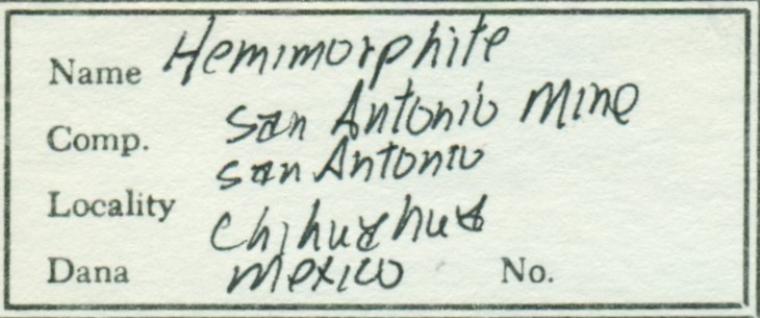 Name Hemimorphite
Comp. San Antonio Mine
San Antonio
Locality
Chihuahua
Dana Mexico No.